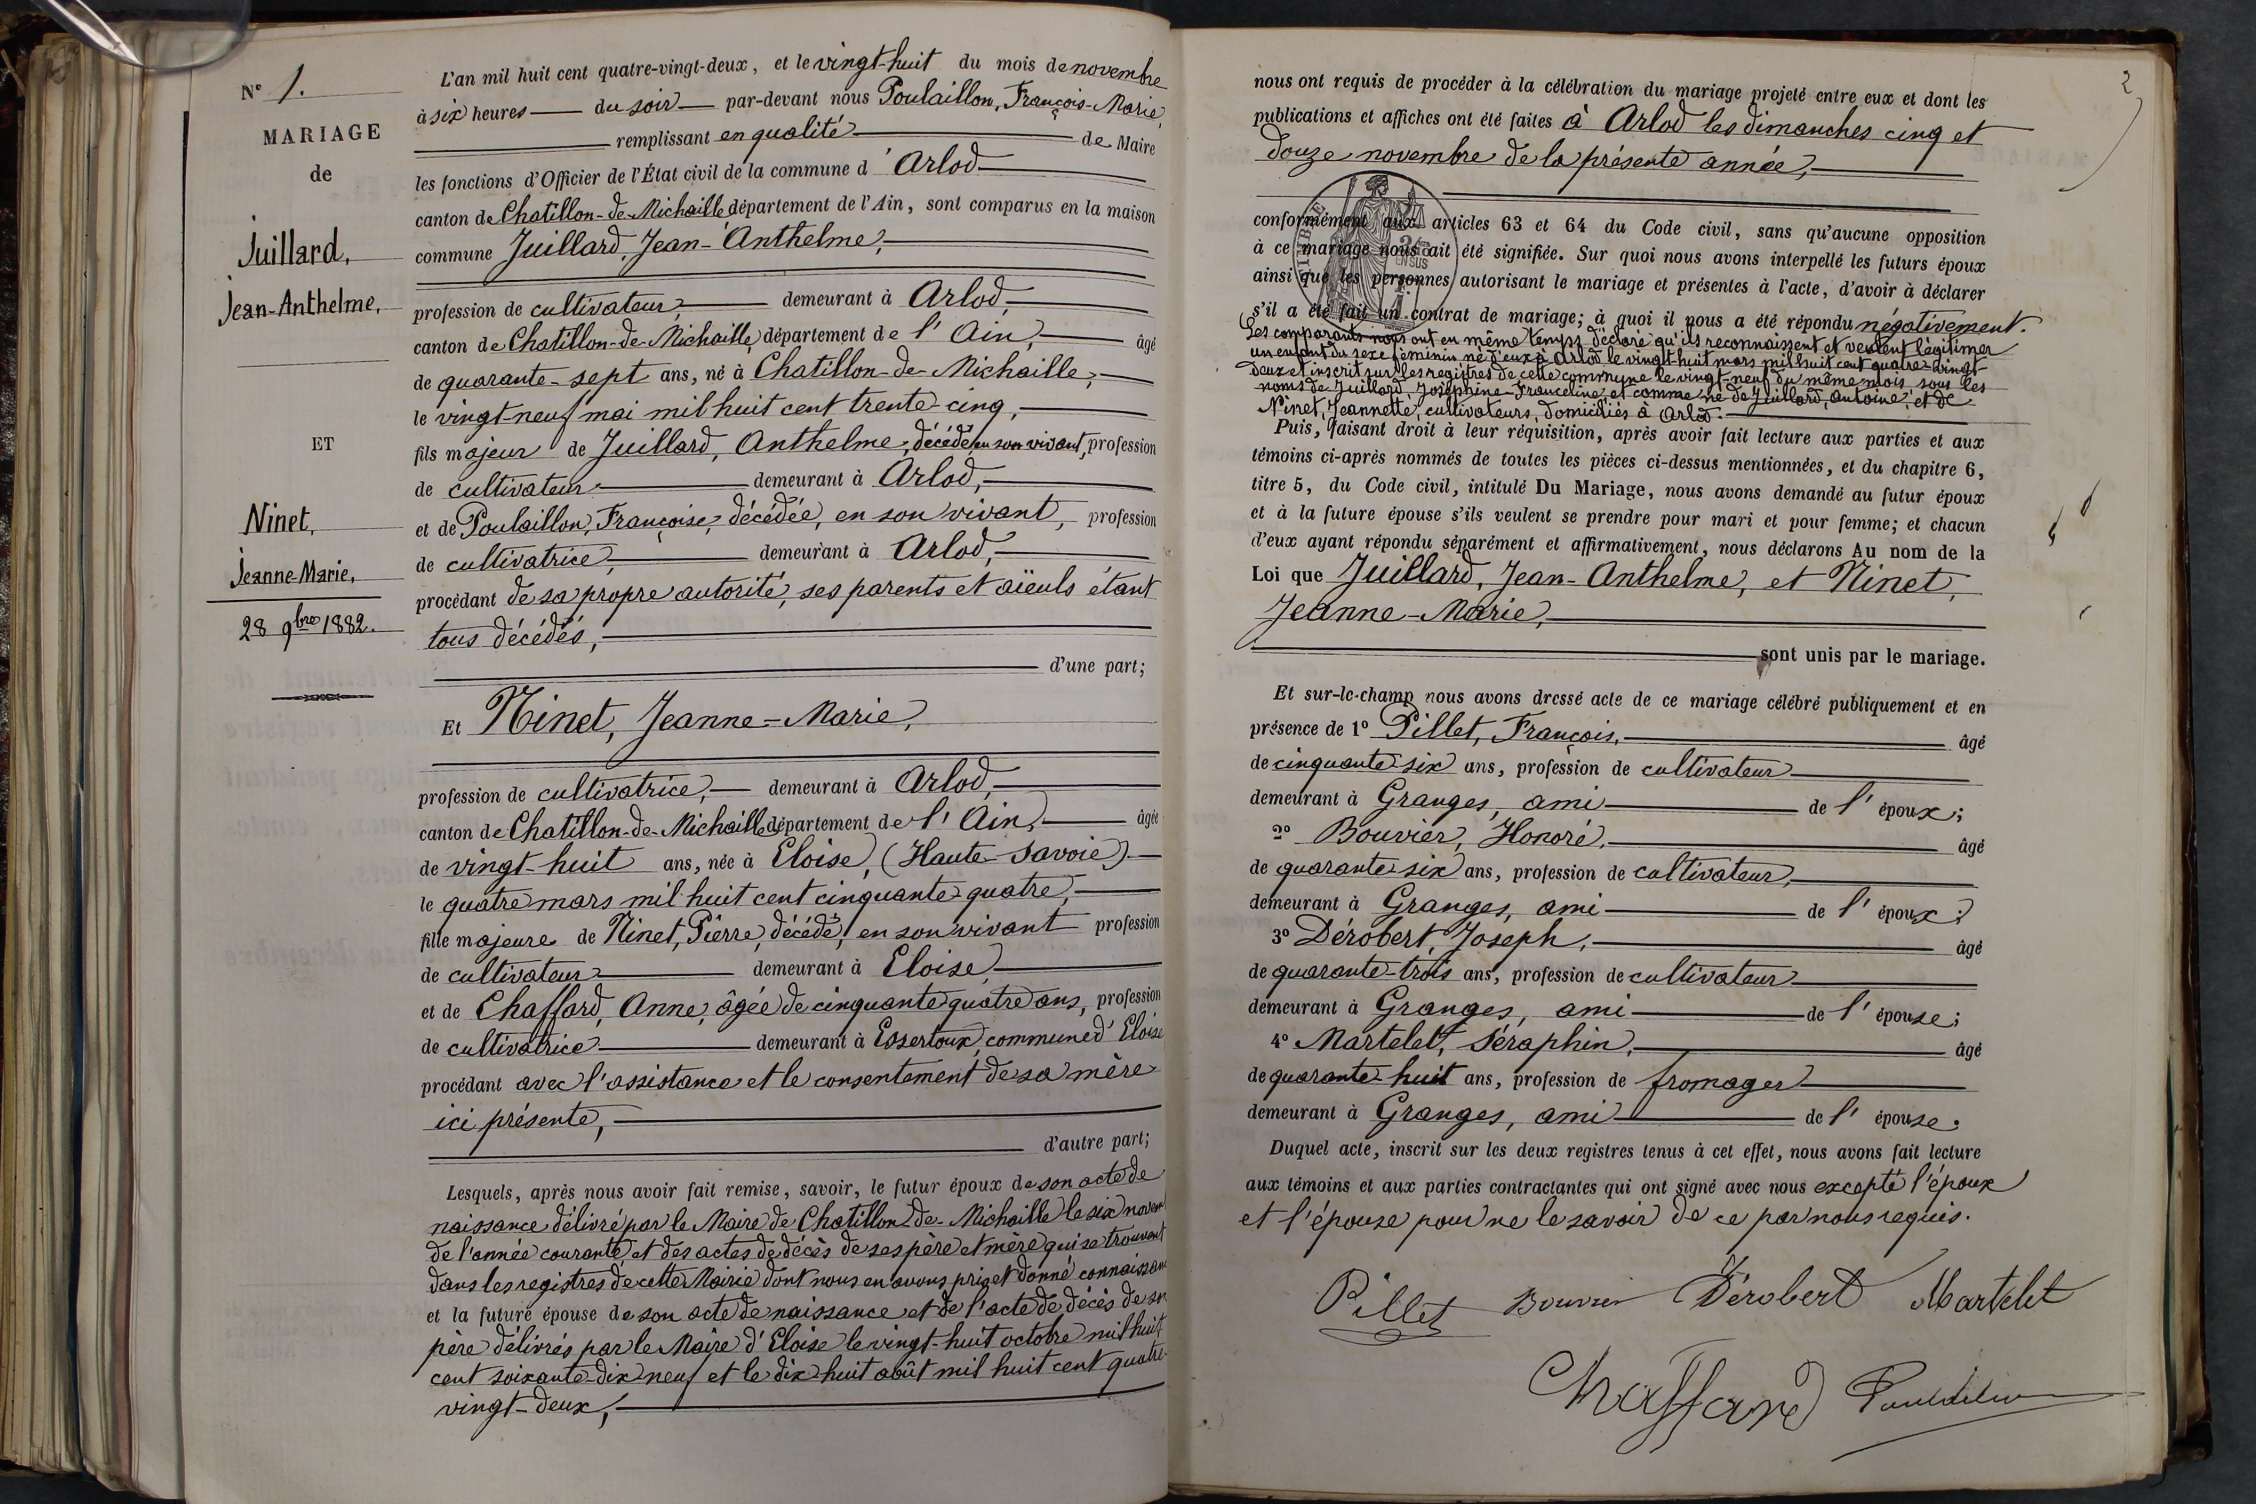 N° 1.
MARIAGE
de
Juillard,
Jean-Anthelme,
ET
Ninet,
Jeanne-Marie,
28 9bre 1882.
L'an mil huit cent quatre-vingt-deux, et le vingt-huit du mois de novembre
à six heures du soir par-devant nous Poulaillon, François-Marie,
remplissant en qualité de Maire
les fonctions d'Officier de l'État civil de la commune d'Arlod
canton de Chatillon-de-Michaille département de l'Ain, sont comparus en la maison
commune Juillard, Jean-Anthelme,
profession de cultivateur, demeurant à Arlod,
canton de Chatillon-de-Michaille, département de l'Ain, âgé
de quarante-sept ans, né à Chatillon-de-Michaille,
le vingt-neuf mai mil huit cent trente-cinq,
fils majeur de Juillard, Anthelme, décédé, en son vivant, profession
de cultivateur demeurant à Arlod,
et de Poulaillon, Françoise, décédée, en son vivant, profession
de cultivatrice, demeurant à Arlod,
procédant de sa propre autorité, ses parents et aïeuls étant
tous décédés,
d'une part;
Et Ninet, Jeanne-Marie,
profession de cultivatrice, demeurant à Arlod,
canton de Chatillon-de-Michaille département de l'Ain, âgée
de vingt-huit ans, née à Eloise, (Haute-Savoie)
le quatre mars mil huit cent cinquante-quatre,
fille majeure de Ninet, Pierre, décédé, en son vivant profession
de cultivateur demeurant à Eloise,
et de Chaffard, Anne, âgée de cinquante quatre ans, profession
de cultivatrice demeurant à Essertoux, commune d'Eloise
procédant avec l'assistance et le consentement de sa mère
ici présente,
d'autre part;
Lesquels, après nous avoir fait remise, savoir, le futur époux de son acte de
naissance délivré par le Maire de Chatillon-de-Michaille le six novem
de l'année courante, et des actes de décès de ses père et mère qui se trouvent
dans les registres de cette Mairie dont nous en avons pris et donné connaissan
et la future épouse de son acte de naissance et de l'acte de décès de son
père délivrés par le Maire d'Eloise le vingt-huit octobre mil huit
cent soixante-dix neuf et le dix-huit août mil huit cent quatre-
vingt-deux,
2
nous ont requis de procéder à la célébration du mariage projeté entre eux et dont les
publications et affiches ont été faites à Arlod les dimanches cinq et
douze novembre de la présente année,
conformément aux articles 63 et 64 du Code civil, sans qu'aucune opposition
à ce mariage nous ait été signifiée. Sur quoi nous avons interpellé les futurs époux
ainsi que les personnes autorisant le mariage et présentes à l'acte, d'avoir à déclarer
s'il a été fait un contrat de mariage; à quoi il nous a été répondu négativement.
Les comparants nous ont en même temps déclaré qu'ils reconnaissent et veulent légitimer
un enfant du sexe féminin né d'eux à Arlod le vingt-huit mars mil huit cent quatre-vingt-
deux et inscrit sur les registres de cette commune le vingt-neuf du même mois sous les
noms de Juillard, Joséphine-Franceline, et comme né de Juillard, Antoine, et de
Ninet, Jeannette, cultivateurs, domiciliés à Arlod.
Puis, faisant droit à leur réquisition, après avoir fait lecture aux parties et aux
témoins ci-après nommés de toutes les pièces ci-dessus mentionnées, et du chapitre 6,
titre 5, du Code civil, intitulé Du Mariage, nous avons demandé au futur époux
et à la future épouse s'ils veulent se prendre pour mari et pour femme; et chacun
d'eux ayant répondu séparément et affirmativement, nous déclarons Au nom de la
Loi que Juillard, Jean-Anthelme, et Ninet,
Jeanne-Marie,
sont unis par le mariage.
Et sur-le-champ nous avons dressé acte de ce mariage célébré publiquement et en
présence de 1° Pillet, François, âgé
de cinquante-six ans, profession de cultivateur
demeurant à Granges, ami de l'époux;
2° Bouvier, Honoré, âgé
de quarante-six ans, profession de cultivateur,
demeurant à Granges, ami de l'époux;
3° Dérobert, Joseph, âgé
de quarante-trois ans, profession de cultivateur
demeurant à Granges, ami de l'épouse;
4° Martelet, Séraphin, âgé
de quarante-huit ans, profession de fromager
demeurant à Granges, ami de l'épouse.
Duquel acte, inscrit sur les deux registres tenus à cet effet, nous avons fait lecture
aux témoins et aux parties contractantes qui ont signé avec nous excepté l'époux
et l'épouse pour ne le savoir de ce par nous requis.
Pillet Bouvier Dérobert Martelet
Chaffard Poulaillon